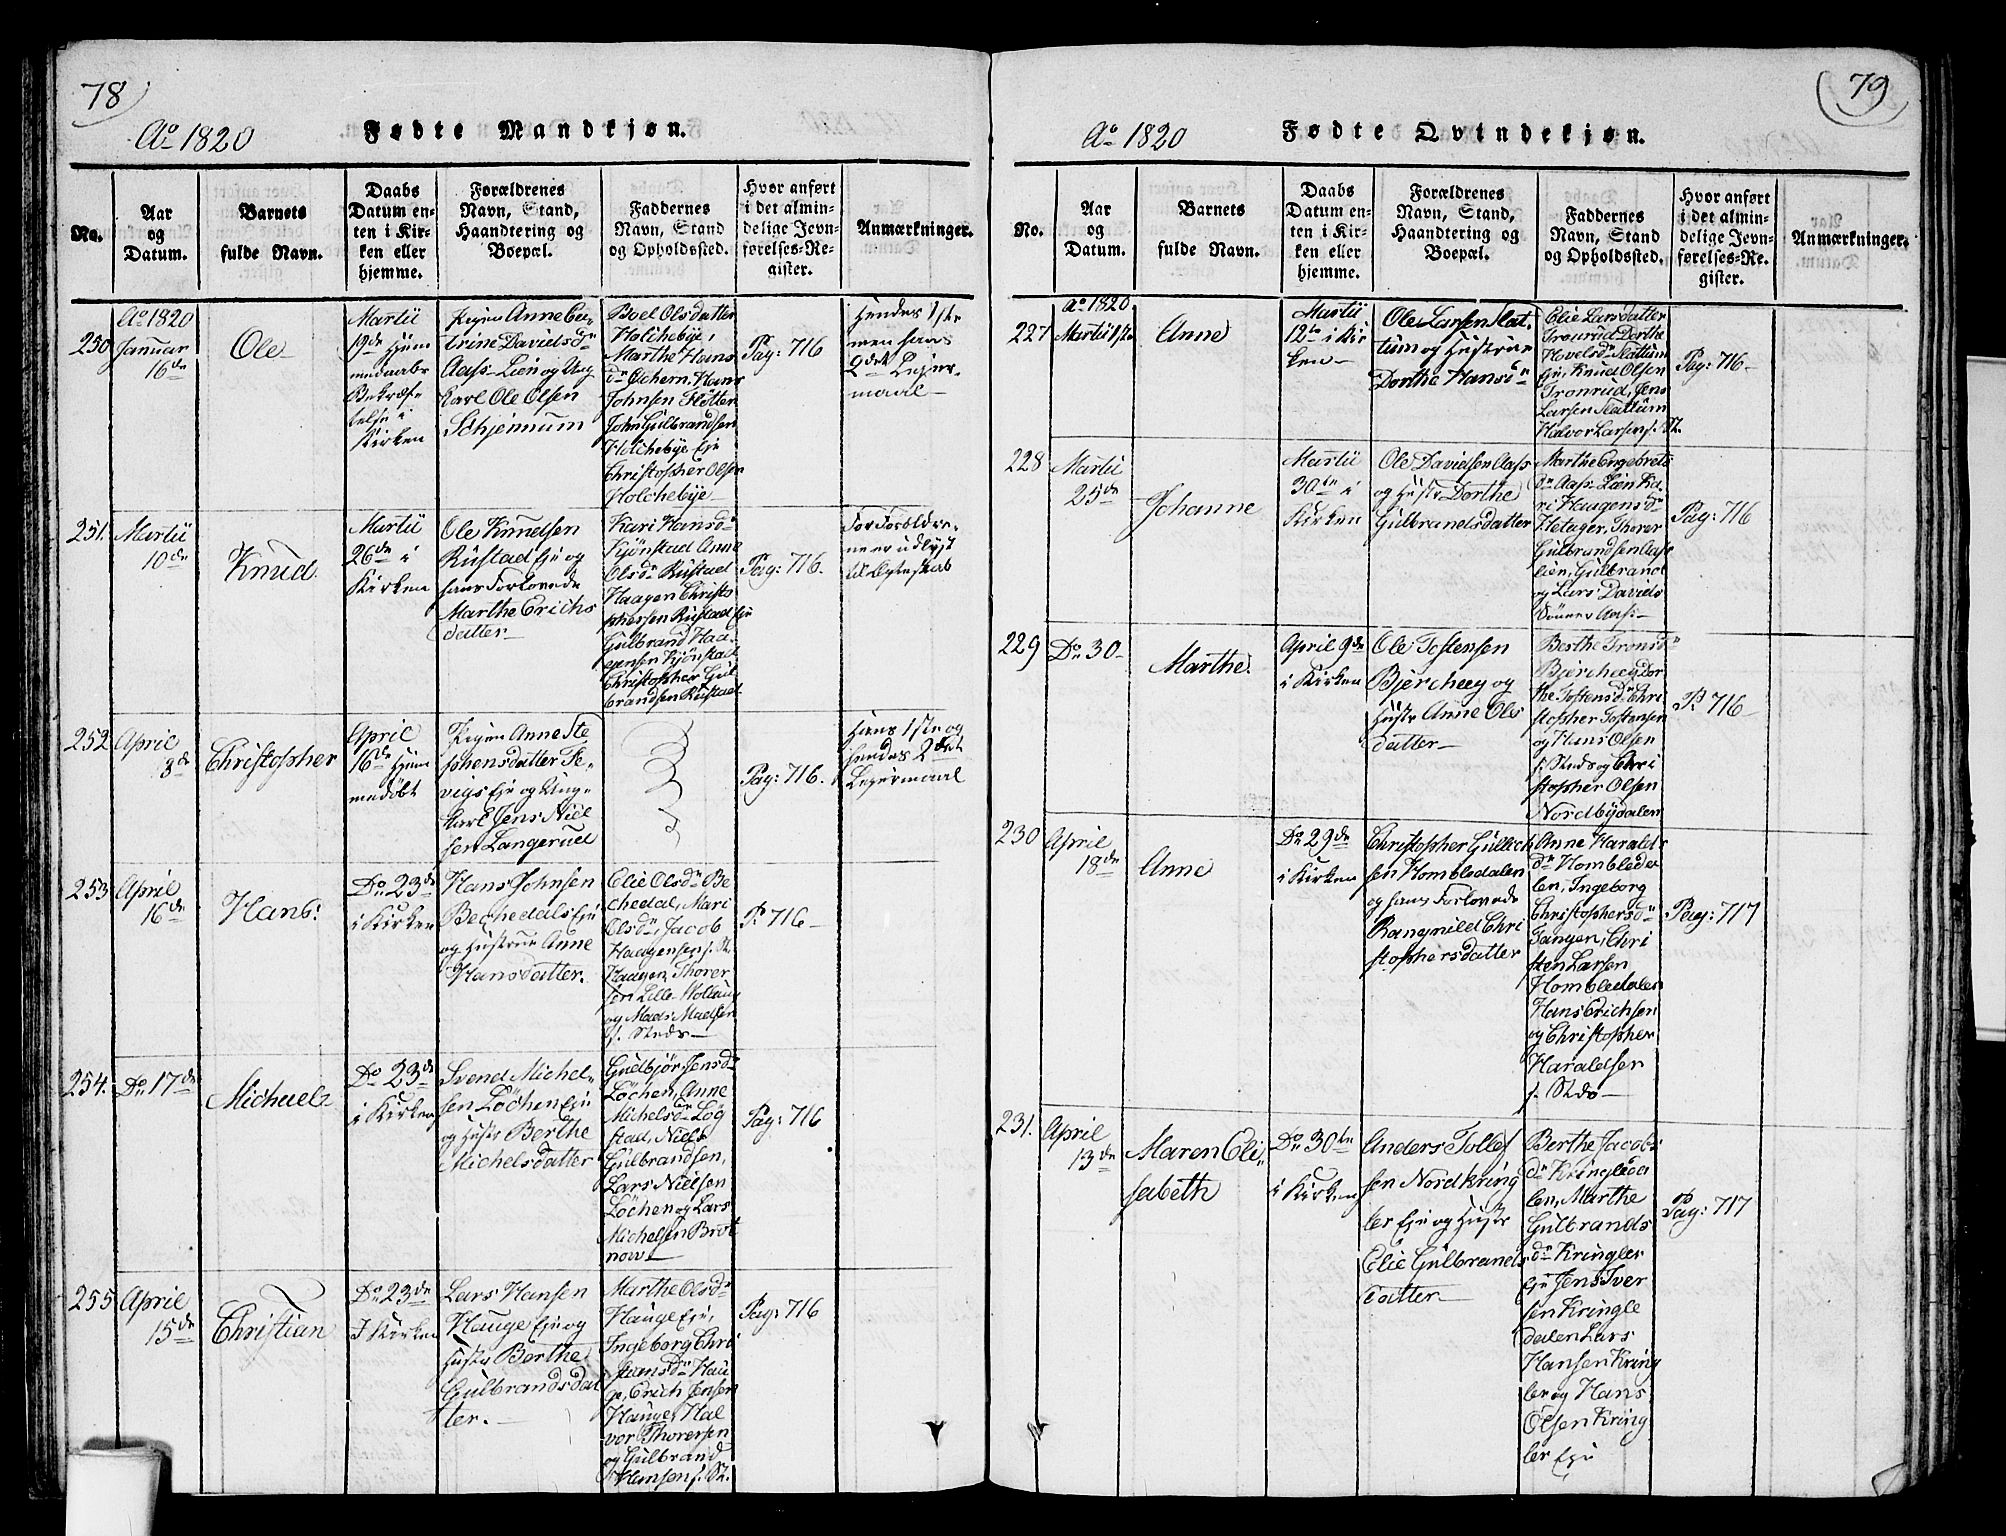 78
Ao 1820
Fødte Mandkjøn.
No.
Aar
og
Datum.
Barnets
fulde Navn.
Daabs
Datum en-
ten i Kir-
ken eller
hjemme.
Forældrenes
Navn, Stand,
Haandtering og
Boepæl.
Faddernes
Navn, Stand
og Opholdssted.
Hvor anført
i det almin-
delige Jevn-
førelses-Re-
gister.
Anmærkninger.
250
Ao 1820
Januar
16de
Ole
Martii
19de Hjem
medaabs
Bekræf
telse i
Kirken
Pigen Anne Ca-
trine Davidsdr
Aass-Lien og Ung
karl Ole Olsen
Schjennum
Boel Olsdatter
Holchebye,
Marthe Hans
dr Ochern, Hans
Johnsen Sletten
John Gulbrandsen
Holchebye Eje
Christopher Olsen
Holchebye
Pag: 716
Hendes 1ste
men hans
2det Lejer-
maal
251.
Martii
10de
Knud.
Martii
26de i
Kirken
Ole Knudsen
Rustad Eje og
hans Forlovede
Marthe Erichs
datter
Kari Hansdr
Kjönstad Anne
Olsdr Rustad
Haagen Christo
phersen Rustad Eje
Gulbrand Haa-
gensen Kjönstad
Christopher Gul
brandsen Rustad
Pag: 716.
For Forældre-
ne er udlyst
til Ægteskab
252
April
3de
Christopher
April
16de Hjem
medöbt
Pigen Anne Ste
phensdatter Se-
vigs Eje og Ung-
karl Jens Niel
sen Langerud
Pag: 716.
Hans 1ste og
hendes 2det
Lejermaal
253
April
16de
Hans.
Do 23de
i Kirken
Hans Johnsen
Bechedals Eje
og Hustrue Anne
Hansdatter.
Elie Olsdr Be
chedal, Mari
Olsdr, Jacob
Haagensen f. St.
Haagen Thorer
sen Lille-Wollaug
og Mads Madsen
f. Steds
P. 716
254.
Do 17de
Michael
Do 23de
i Kirken
Svend Michel-
sen Löchen Eje
og Hustr Berthe
Michelsdatter
Gudbjör Jensdr
Löchen, Anne
Michelsdr Lög
stad, Niels
Gulbrandsen,
Lars Nielsen
Löchen og Lars
Michelsen Brot
now
Pag: 716
255
April
15de
Christian
Do 23de
I Kirken
Lars Hansen
Hauge Eje og
Hustr Berthe
Gulbrandsdat
ter.
Marthe Olsdr
Hauge Eje,
Ingeborg Chri
stiansdr Hau
ge, Erich Jensen
Hauge, Hal
vor Thorersen
og Gulbrand
Hansen f. St.
Pag: 716
79
Ao 1820
Fødte Qvindekjøn.
No.
Aar
og
Datum.
Barnets
fulde Navn.
Daabs
Datum en-
ten i Kir-
ken eller
hjemme.
Forældrenes
Navn, Stand,
Haandtering og
Boepæl.
Faddernes
Navn, Stand
og Opholdssted.
Hvor anført
i det almin-
delige Jevn-
førelses-Re-
gister.
Anmærkninger.
227
Ao 1820
Martii 1ste
Anne
Martii
12te i Kir
ken
Ole Larsen Slat-
tum og Hustrue
Dorthe Hansdr
Elie Larsdatter
Tronrud, Dorthe
Hovelsdr Slattum
Eje, Knud Olsen
Tronrud, Jens
Larsen Slattum
Halvor Larsen f. St.
Pag: 716
228
Martii
25de
Johanne
Martii
30te i
Kirken
Ole Davidsen Aass
og Hustr Dorthe
Gulbrandsdatter
Marthe Engebrets
dr Aass-Lien, Ka-
ri Haagensdr
Hetager, Thorer
Gulbrandsen Aass
lien, Gulbrand
og Lars Davids
Sönner Aass
Pag: 716
229
Do 30
Marthe
April 9de
i Kirken
Ole Tostensen
Bjercheey og
Hustr Anne Ols
datter
Berthe Tronsdr
Bjercheey Dor
the Tostensdr Chri
stopher Tostensen
og Hans Olsen
f. Steds og Chri
stopher Olsen
Nordbydalen
P. 716
230
April
18de
Anne
Do 29de
i Kirken
Christopher Gullich
sen Hombledalen
og hans Forlovede
Rangnild Chri
stophersdatter
Anne Haralds
dr Hombleda
len, Ingeborg
Christophersdr
Tangen, Chri
sten Larsen
Hombledalen
Hans Erichsen
og Christopher
Haraldsen
f. Steds
Pag: 717
231.
April
13de
Maren Eli-
sabeth
Do 30te
i Kirken
Anders Tollef
sen Nordkring
ler Eje og Hustr
Elie Gulbrands
datter
Berthe Jacobs
dr Kringleda
len, Marthe
Gulbrands
dr Kringler
Eje Jens Iver
sen Kringle
dalen Lars
Hansen Kring
ler og Hans
Olsen Kring
ler Eje
Pag: 717